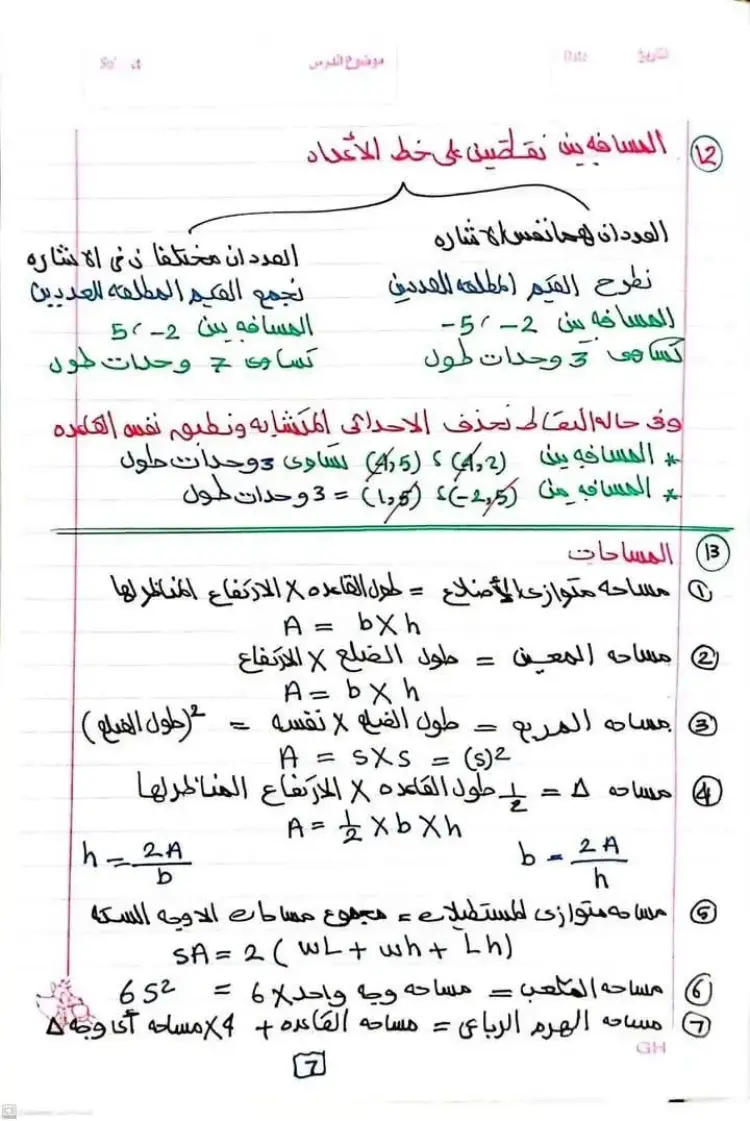 التاريخ
Date
موضوع الدرس
⑫ المسافه بين نقطتين على خط الأعداد
العددان لهما نفس الاشاره
العددان مختلفان فى الاشاره
نطرح القيم المطلقه للعددين
نجمع القيم المطلقه للعديين
المسافه بين 2- ، 5-
المسافه بين 2- ، 5
تساوى 3 وحدات طول
تساوى 7 وحدات طول
وفى حاله النقاط نحذف الاحداثى المتشابه ونطبق نفس القاعده
* المسافه بين (4,2) ، (4,5) تساوى 3 وحدات طول
* المسافه بين (-2,5) ، (1,5) = 3 وحدات طول
⑬ المساحات
① مساحه متوازى الأضلاع = طول القاعده X الارتفاع المناظر لها
A = b X h
② مساحه المعين = طول الضلع X الارتفاع
A = b X h
③ مساحه المربع = طول الضلع X نفسه = (طول الضلع)²
A = s X s = (s)²
④ مساحه Δ = 1/2 طول القاعده X الارتفاع المناظر لها
A = 1/2 X b X h
b = 2A/h
h = 2A/b
⑤ مساحه متوازى المستطيلات = مجموع مساحات الاوجه السته
SA = 2 ( wL + wh + Lh)
⑥ مساحه المكعب = مساحه وجه واحد X 6 = 6S²
⑦ مساحه الهرم الرباعى = مساحه القاعده + 4X مساحه أى وجه Δ
7
GH